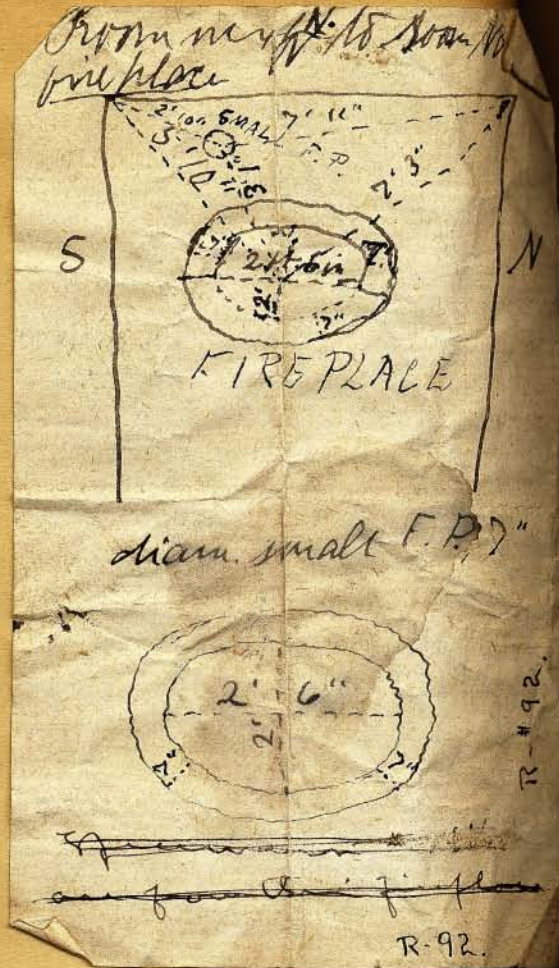 Room next N. to Room No
fireplace
7' 11"
2' on SMALL F. P.
3'-10"
2' 3"
S
N
2 ft. 6 in
7"
7"
2'
7"
FIREPLACE
diam. small F. P. 7"
2' 6"
2'
7"
7"
R-#92.
R-92.